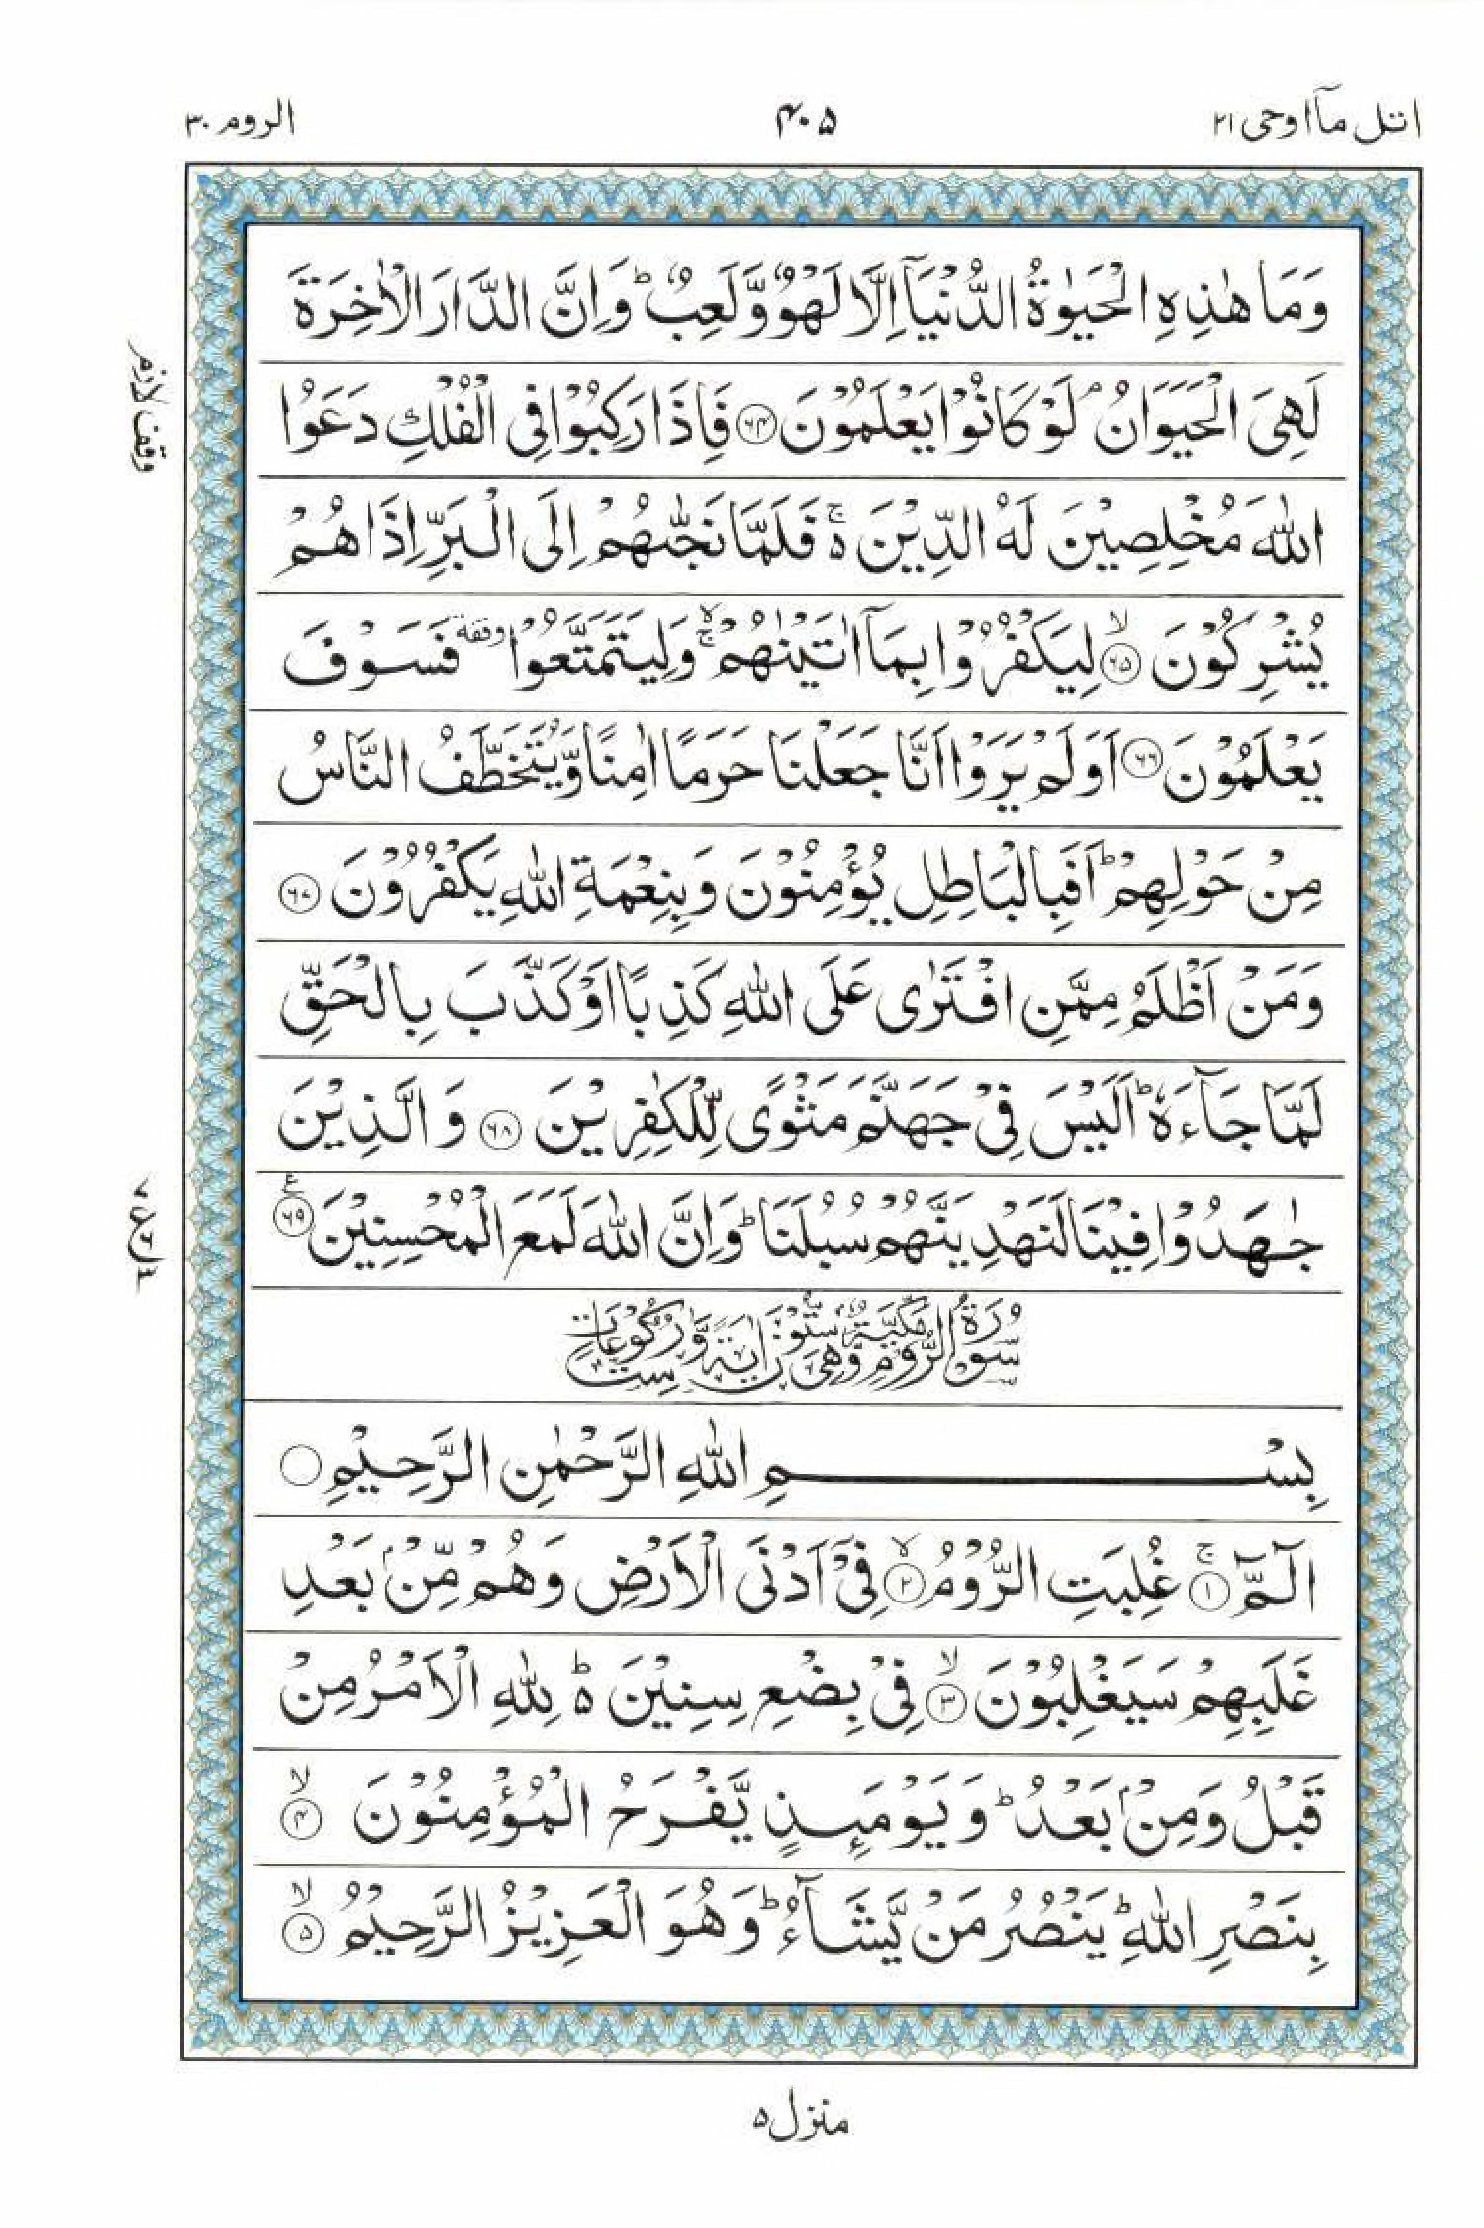 اتل مآ اوحی ۲۱
۴۰۵
الروم ۳۰
وَمَا هٰذِهِ الْحَيٰوةُ الدُّنْيَاۤ اِلَّا لَهْوٌ وَّلَعِبٌ ؕ وَاِنَّ الدَّارَ الْاٰخِرَةَ
لَهِىَ الْحَيَوَانُ ۘ لَوْ كَانُوْا يَعْلَمُوْنَ ﴿۶۴﴾ فَاِذَا رَكِبُوْا فِى الْفُلْكِ دَعَوُا
وقف لازم
اللّٰهَ مُخْلِصِيْنَ لَهُ الدِّيْنَ ۚ۬ فَلَمَّا نَجّٰىهُمْ اِلَى الْبَرِّ اِذَا هُمْ
يُشْرِكُوْنَ ۙ﴿۶۵﴾ لِيَكْفُرُوْا بِمَاۤ اٰتَيْنٰهُمْ ۙۚ وَلِيَتَمَتَّعُوْا وقفة فَسَوْفَ
يَعْلَمُوْنَ ﴿۶۶﴾ اَوَلَمْ يَرَوْا اَنَّا جَعَلْنَا حَرَمًا اٰمِنًا وَّيُتَخَطَّفُ النَّاسُ
مِنْ حَوْلِهِمْ ؕ اَفَبِالْبَاطِلِ يُؤْمِنُوْنَ وَبِنِعْمَةِ اللّٰهِ يَكْفُرُوْنَ ﴿۶۷﴾
وَمَنْ اَظْلَمُ مِمَّنِ افْتَرٰى عَلَى اللّٰهِ كَذِبًا اَوْ كَذَّبَ بِالْحَقِّ
لَمَّا جَآءَهٗ ؕ اَلَيْسَ فِىْ جَهَنَّمَ مَثْوًى لِّلْكٰفِرِيْنَ ﴿۶۸﴾ وَالَّذِيْنَ
جٰهَدُوْا فِيْنَا لَنَهْدِيَنَّهُمْ سُبُلَنَا ؕ وَاِنَّ اللّٰهَ لَمَعَ الْمُحْسِنِيْنَ ﴿۶۹﴾ ع
سُوْرَةُ الرُّوْمِ مَكِّيَّةٌ وَّهِىَ سِتُّوْنَ اٰيَةً وَّسِتُّ رُكُوْعَاتٍ
بِسْمِ اللّٰهِ الرَّحْمٰنِ الرَّحِيْمِ
الٓمّٓ ۚ﴿۱﴾ غُلِبَتِ الرُّوْمُ ۙ﴿۲﴾ فِىْۤ اَدْنَى الْاَرْضِ وَهُمْ مِّنْۢ بَعْدِ
غَلَبِهِمْ سَيَغْلِبُوْنَ ۙ﴿۳﴾ فِىْ بِضْعِ سِنِيْنَ ؕ۬ لِلّٰهِ الْاَمْرُ مِنْ
قَبْلُ وَمِنْۢ بَعْدُ ؕ وَيَوْمَئِذٍ يَّفْرَحُ الْمُؤْمِنُوْنَ ۙ﴿۴﴾
بِنَصْرِ اللّٰهِ ؕ يَنْصُرُ مَنْ يَّشَآءُ ؕ وَهُوَ الْعَزِيْزُ الرَّحِيْمُ ۙ﴿۵﴾
منزل ۵